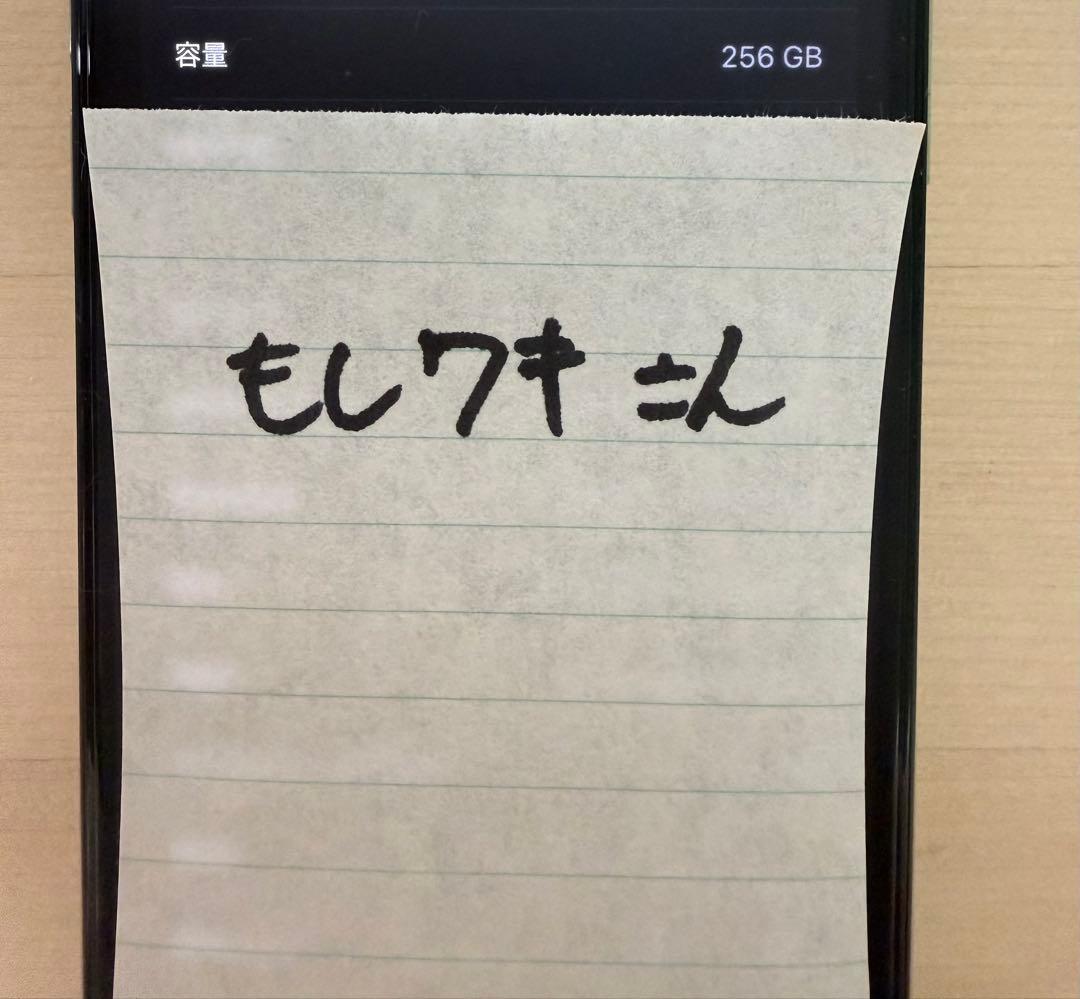 容量 256 GB
もしワキさん